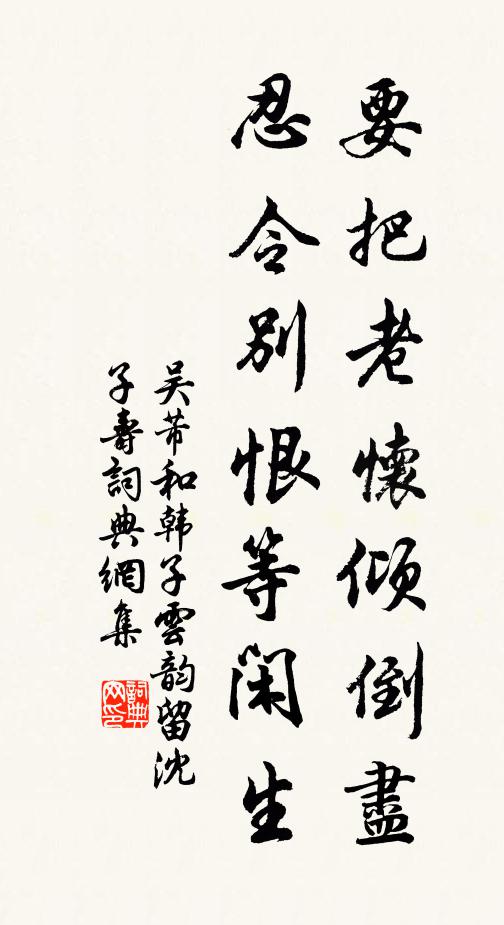 要把老懷傾倒盡
忍令別恨等閑生
吴芾和韩子雲韵留沈
子壽詞典網集
詞典网印